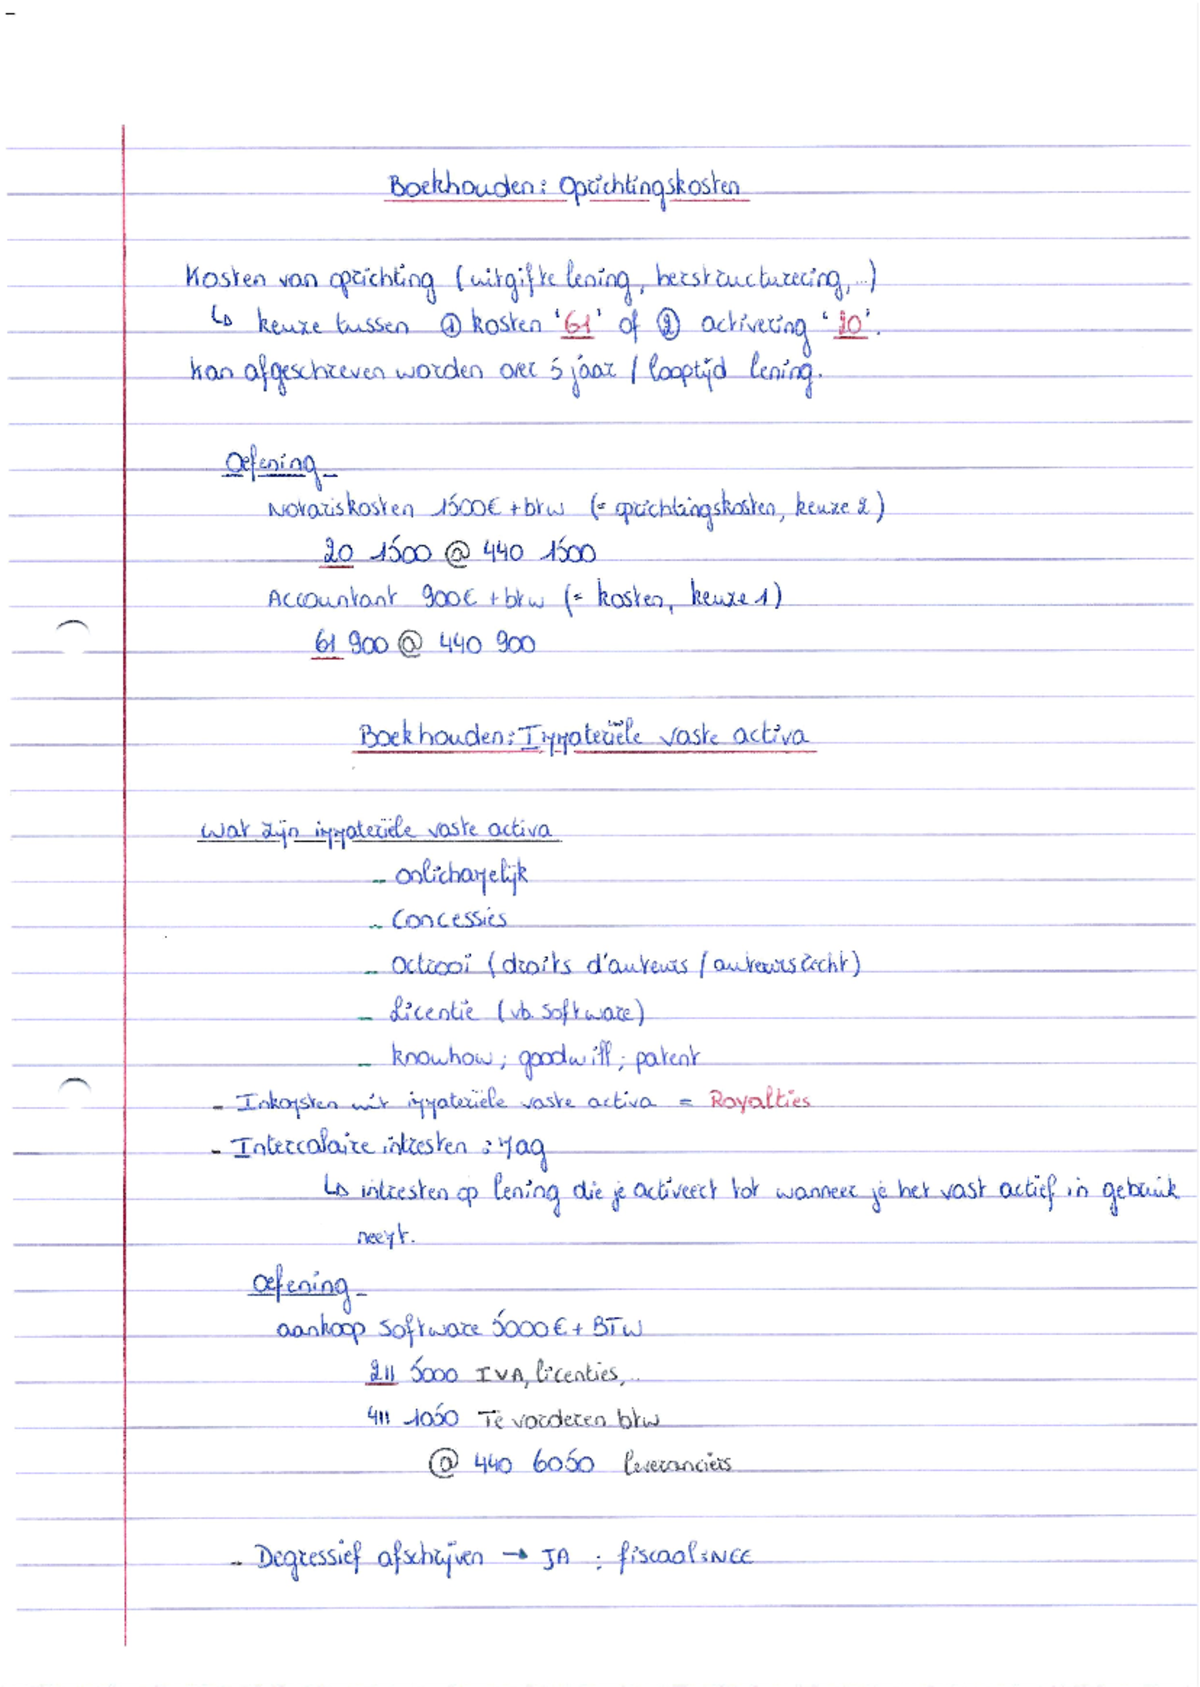 Boekhouden: Oprichtingskosten
Kosten van oprichting (uitgifte lening, herstructurering,...)
↳ keuze tussen ① kosten '61' of ② activering '20'.
Kan afgeschreven worden over 5 jaar / looptijd lening.
Oefening
Notariskosten 1500€ + btw (= oprichtingskosten, keuze 2)
20 1500 @ 440 1500
Accountant 900€ + btw (= kosten, keuze 1)
61 900 @ 440 900
Boekhouden: Immateriële vaste activa
Wat zijn immateriële vaste activa
- onlichamelijk
- Concessies
- Octrooi (droits d'auteurs / auteursrecht)
- Licentie (vb. software)
- knowhow; goodwill; patent
- Inkomsten uit immateriële vaste activa = Royalties
- Intercalaire intresten : mag
↳ intresten op lening die je activeert tot wanneer je het vast actief in gebruik
neemt.
Oefening
aankoop software 5000€ + BTW
211 5000 IVA, licenties,..
411 1050 Te vorderen btw
@ 440 6050 leveranciers
- Degressief afschrijven → JA : fiscaal: NEE